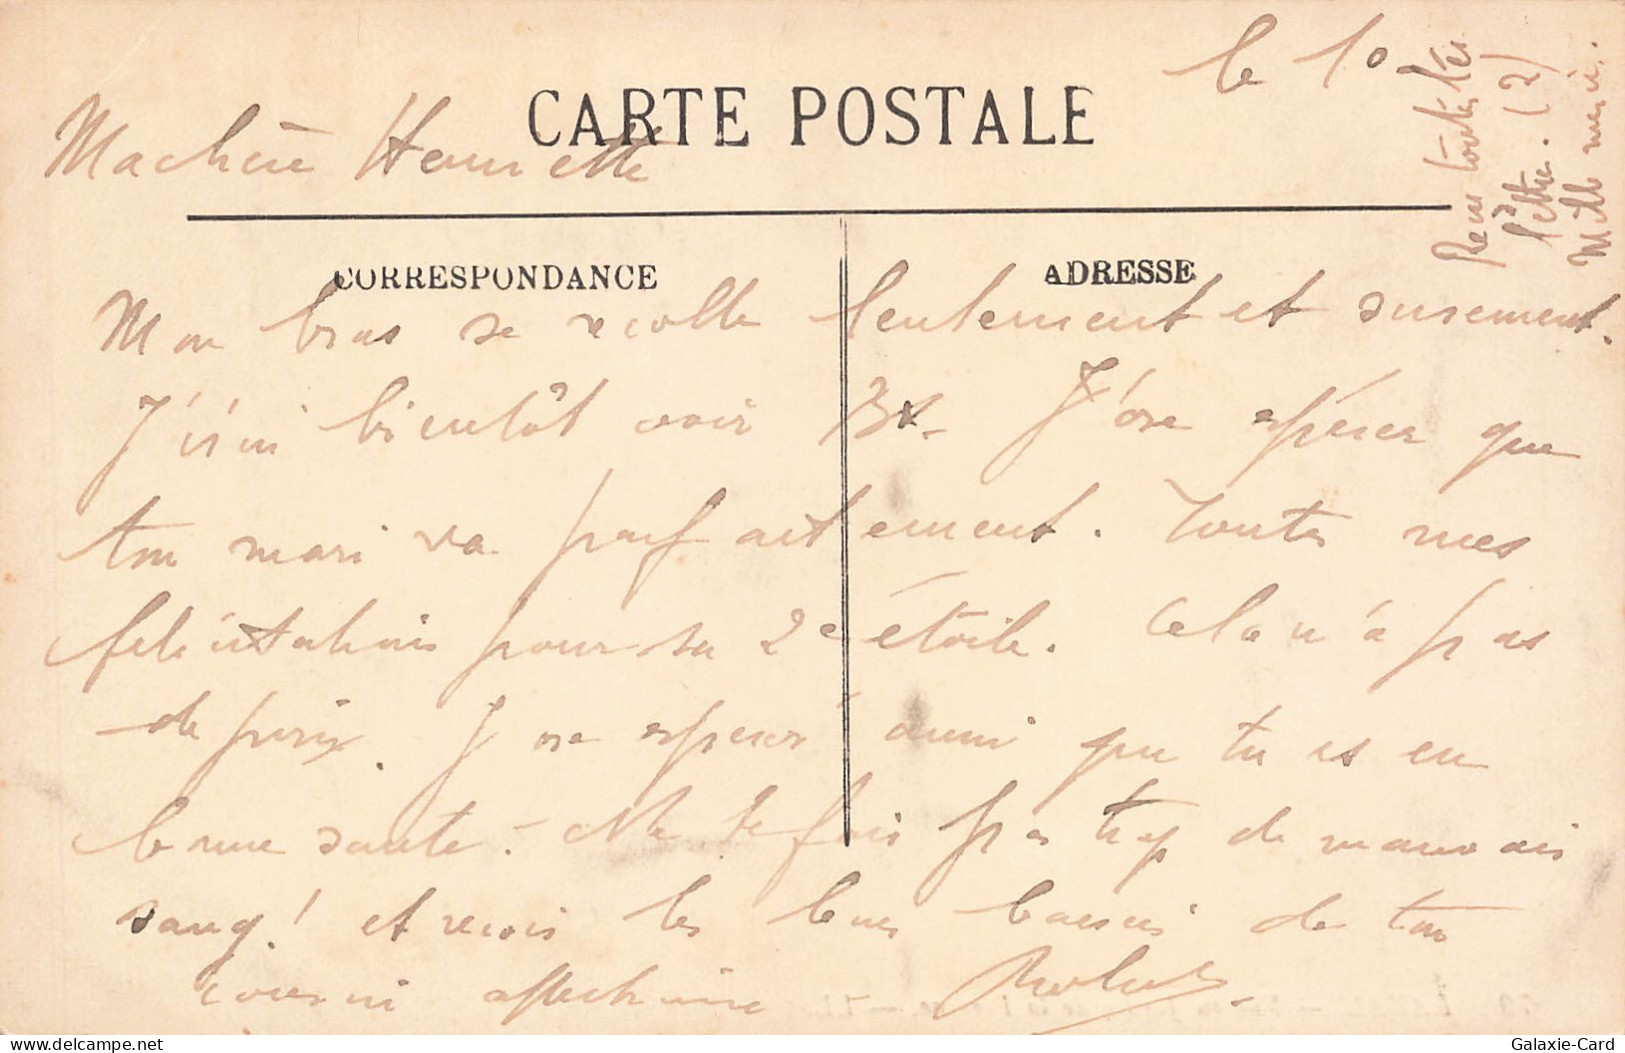 le 10
CARTE POSTALE
Ma chère Henriette
CORRESPONDANCE
ADRESSE
Mon bras se recolle lentement et surement.
J'irai bientôt voir Bx. J'ose espérer que
ton mari va parfaitement. Toutes mes
félicitations pour sa 2e étoile. Cela n'a pas
de prix. J'ose espérer aussi que tu es en
bonne santé. - Ne te fais pas trop de mauvais
sang! et reçois les bons baisers de ton
cousin affectionné Robert
Reçu toutes tes
lettres. (2)
Mille merci.
delcampe.net
Galaxie-Card